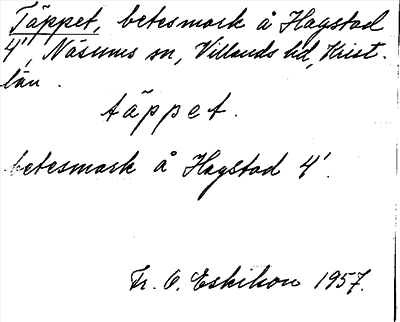 Täppet, betesmark å Hagstad
4', Näsums sn, Villands hd, Krist.
län.
täppet.
betesmark å Hagstad 4'.
Fr. O. Eskilson 1957.